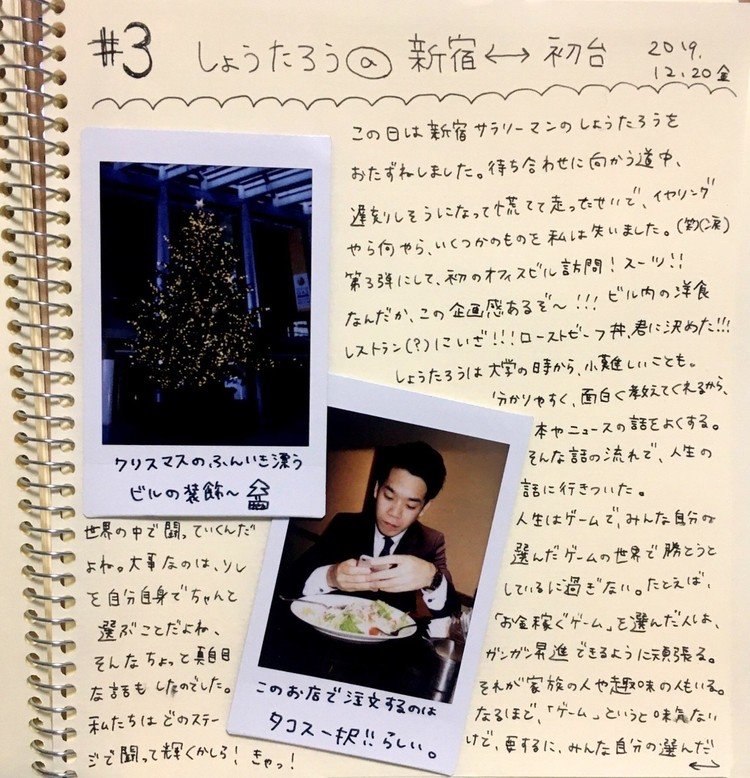 #3 しょうたろう@新宿↔初台 2019.
12.20金
この日は新宿サラリーマンのしょうたろうを
おたずねしました。待ち合わせに向かう道中、
遅刻しそうになって慌てて走ったせいで、イヤリング
やら何やら、いくつかのものを私は失いました。(笑)(涙)
第3弾にして、初のオフィスビル訪問!スーツ!!
なんだか、この企画感あるぞ〜!!! ビル内の洋食
レストラン(?)にいざ!!!ローストビーフ丼、君に決めた!!!
しょうたろうは大学の時から、小難しいことも。
分かりやすく、面白く教えてくれるから、
本やニュースの話をよくする。
そんな話の流れで、人生の
話に行きついた。
人生はゲームで、みんな自分の
選んだゲームの世界で勝とうと
しているに過ぎない。たとえば、
「お金稼ぐゲーム」を選んだ人は、
ガンガン昇進できるように頑張る。
それが家族の人や趣味の人もいる。
なるほど、「ゲーム」というと味気ない
けど、要するに、みんな自分の選んだ
↔
クリスマスのふんいき漂う
ビルの装飾〜
世界の中で闘っていくんだ
よね。大事なのは、ソレ
を自分自身でちゃんと
選ぶことだよね、
そんなちょっと真面目
な話もしたのでした。
私たちはどのステー
ジで闘って輝くかしら!きゃっ!
このお店で注文するのは
タコス一択!!らしい。